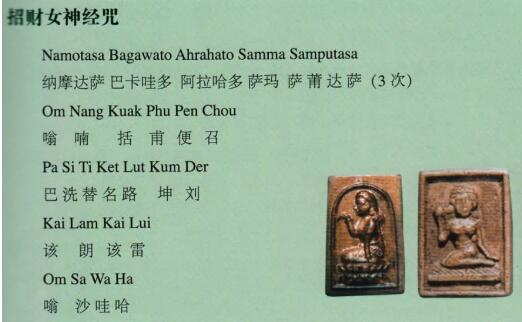 招财女神经咒
Namotasa Bagawato Ahrahato Samma Samputasa
纳摩达萨 巴卡哇多 阿拉哈多 萨玛 萨莆达萨（3次）
Om Nang Kuak Phu Pen Chou
嗡 喃 括 甫 便 召
Pa Si Ti Ket Lut Kum Der
巴 洗 替 名 路 坤 刘
Kai Lam Kai Lui
该 朗 该 雷
Om Sa Wa Ha
嗡 沙 哇 哈